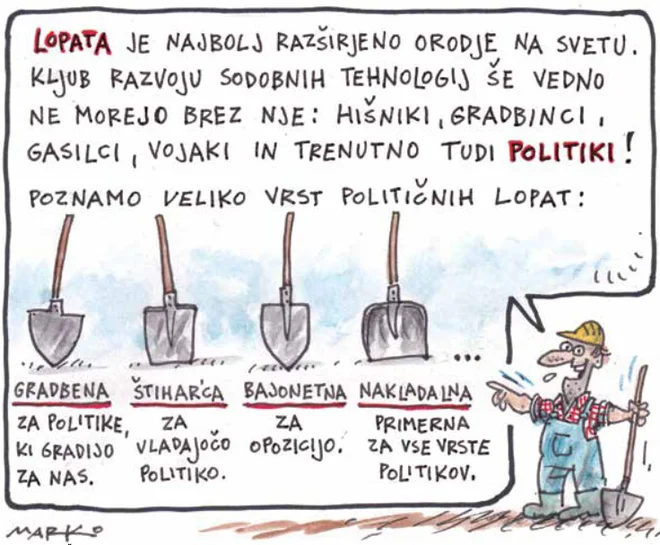 LOPATA JE NAJBOLJ RAZŠIRJENO ORODJE NA SVETU.
KLJUB RAZVOJU SODOBNIH TEHNOLOGIJ ŠE VEDNO
NE MOREJO BREZ NJE: HIŠNIKI, GRADBINCI,
GASILCI, VOJAKI IN TRENUTNO TUDI POLITIKI!
POZNAMO VELIKO VRST POLITIČNIH LOPAT:
...
GRADBENA
ZA POLITIKE,
KI GRADIJO
ZA NAS.
ŠTIHAR'CA
ZA
VLADAJOČO
POLITIKO.
BAJONETNA
ZA
OPOZICIJO.
NAKLADALNA
PRIMERNA
ZA VSE VRSTE
POLITIKOV.
MARKO